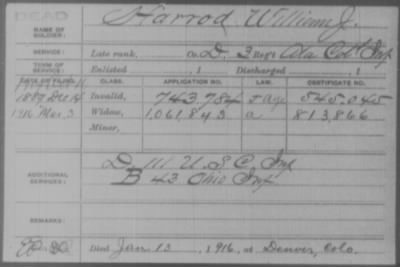 DEAD
NAME OF SOLDIER: Harrod William J.
SERVICE: Late rank, Co. D, 3 Reg't Ala Col'd Inf
TERM OF SERVICE: Enlisted , 1 Discharged , 1
DATE OF FILING. CLASS. APPLICATION NO. LAW. CERTIFICATE NO.
1889 Dec 14 Invalid, 743,784 Age 545,045
1916 Mar 3 Widow, 1,061,843 a 813,866
Minor,
ADDITIONAL SERVICES: D. 111 U.S.C. Inf
B 43 Ohio Inf
REMARKS:
Died Jan 13, 1916, at Denver, Colo.